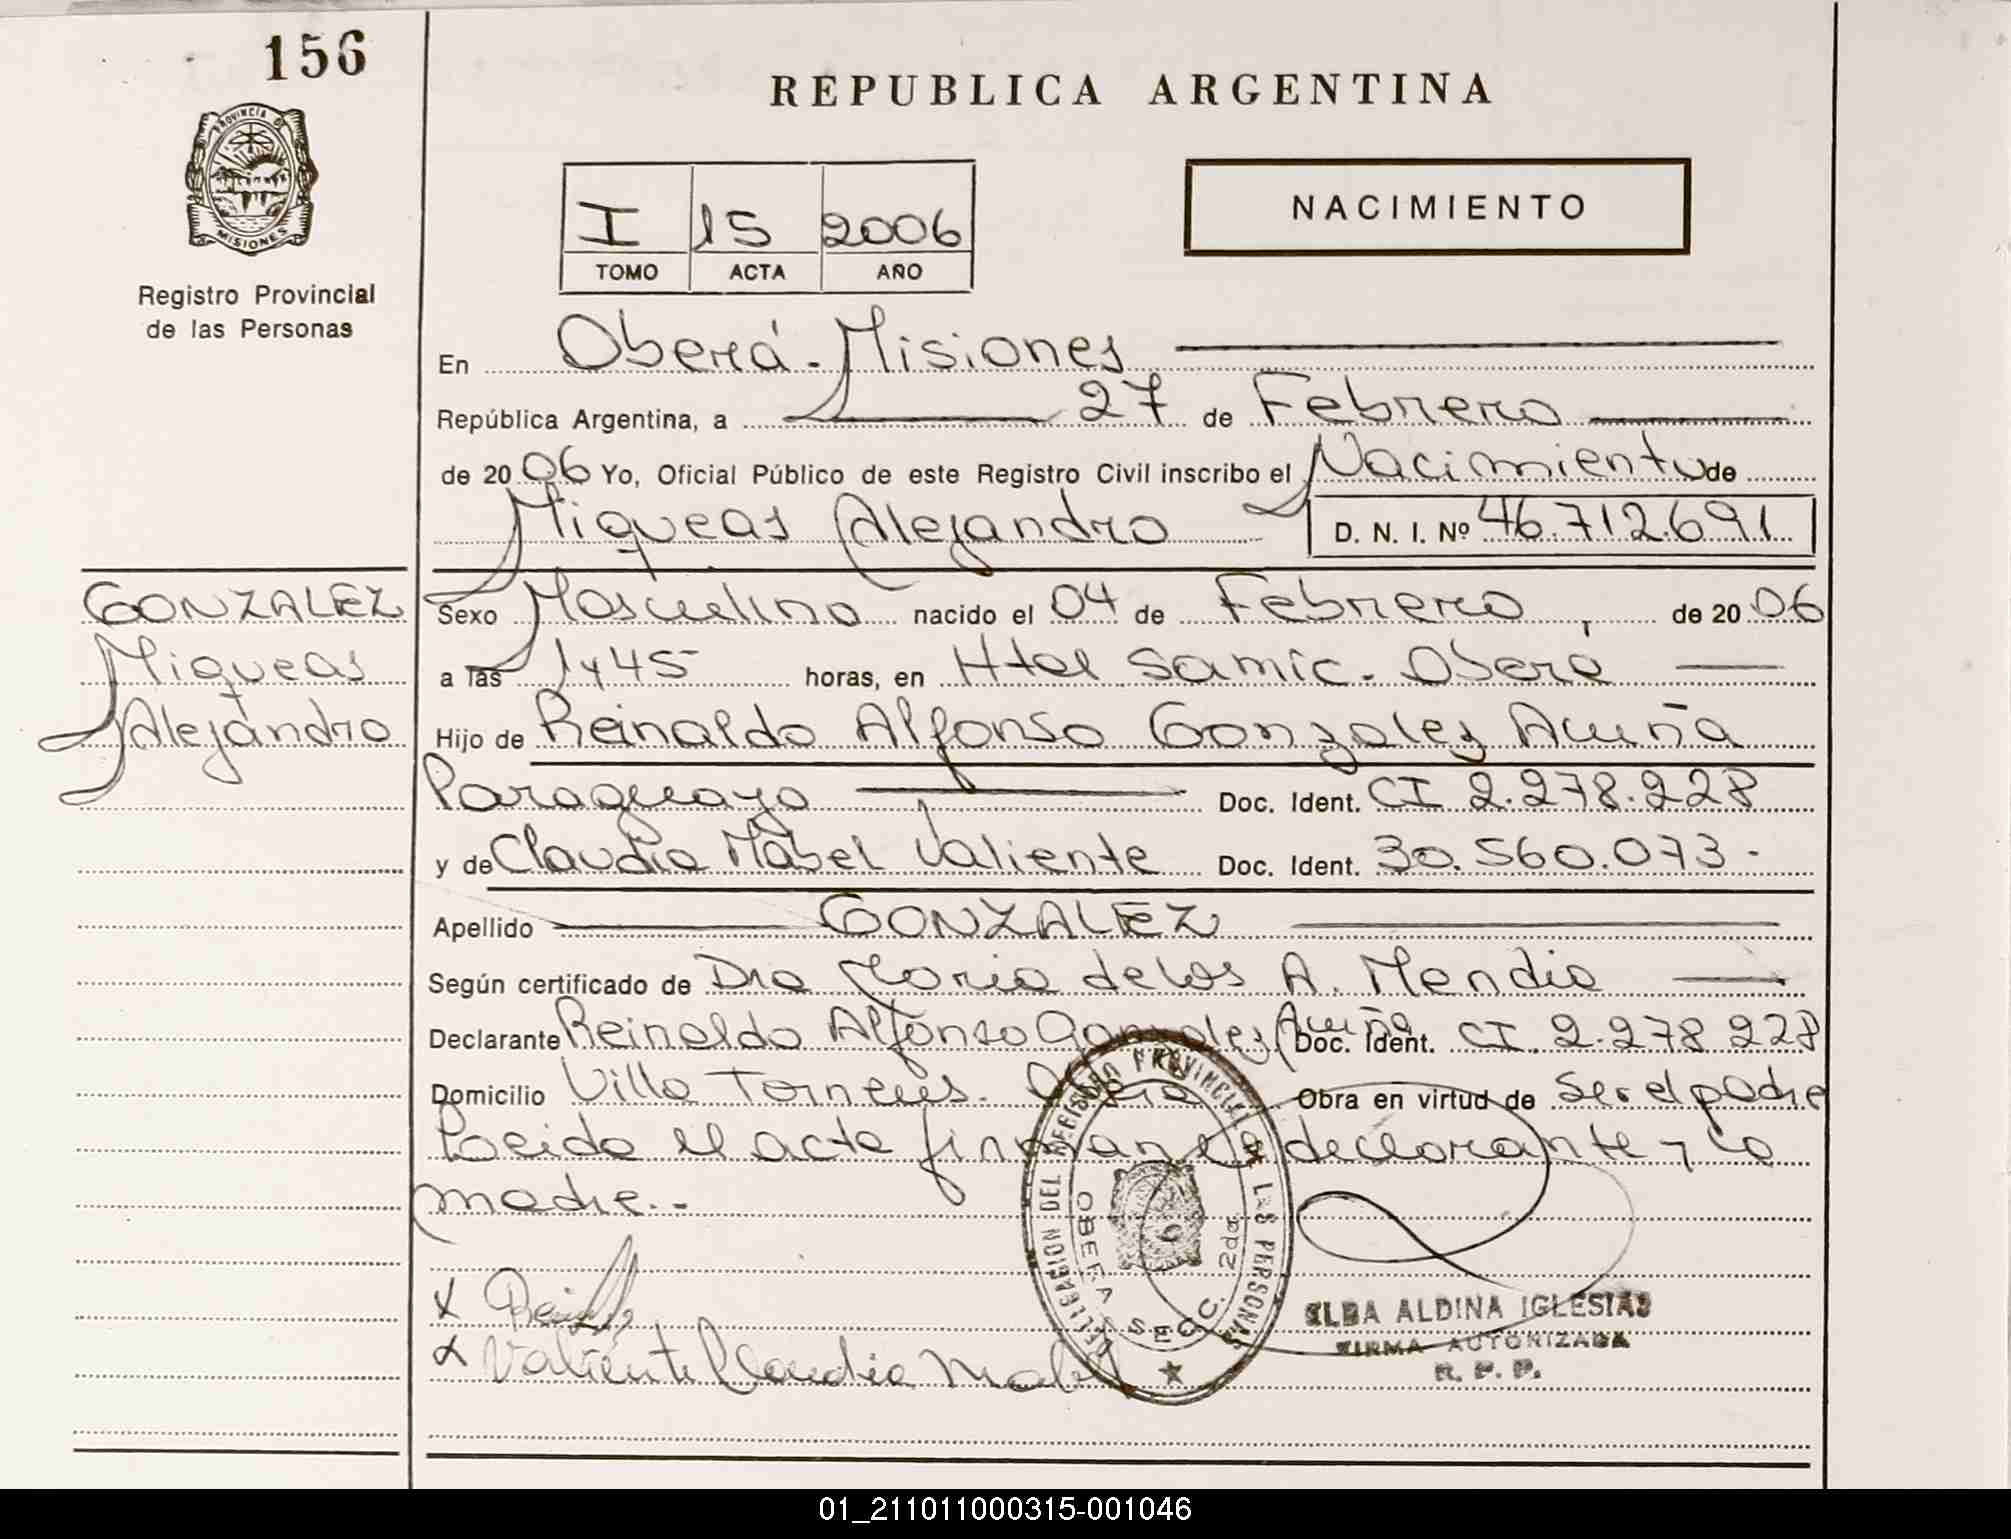 156
REPUBLICA ARGENTINA
PROVINCIA DE
MISIONES
Registro Provincial
de las Personas
I 15 2006
TOMO ACTA AÑO
NACIMIENTO
En Oberá - Misiones
República Argentina, a 27 de Febrero
de 2006 Yo, Oficial Público de este Registro Civil inscribo el Nacimiento de
Miqueas Alejandro D. N. I. Nº 46.712.691
GONZALEZ
Miqueas
Alejandro
Sexo Masculino nacido el 04 de Febrero, de 2006
a las 1y45 horas, en Htal Samic. Oberá
Hijo de Reinaldo Alfonso Gonzalez Acuña
Paraguayo Doc. Ident. CI 2.278.228
y de Claudia Mabel Valiente Doc. Ident. 30.560.073-
Apellido GONZALEZ
Según certificado de Dra Maria de los A. Mendia
Declarante Reinaldo Alfonso Gonzalez Acuña Doc. Ident. CI. 2.278 228
Domicilio Villa Oberá Obra en virtud de ser el padre
Leida el acta firman el declarante y la
madre.-
x
x Valiente Claudia Mabel
DELEGACION DEL REGISTRO PROVINCIAL DE LAS PERSONAS
OBERA SECC. 2da
ELBA ALDINA IGLESIAS
FIRMA AUTORIZADA
R. P. P.
01_211011000315-001046